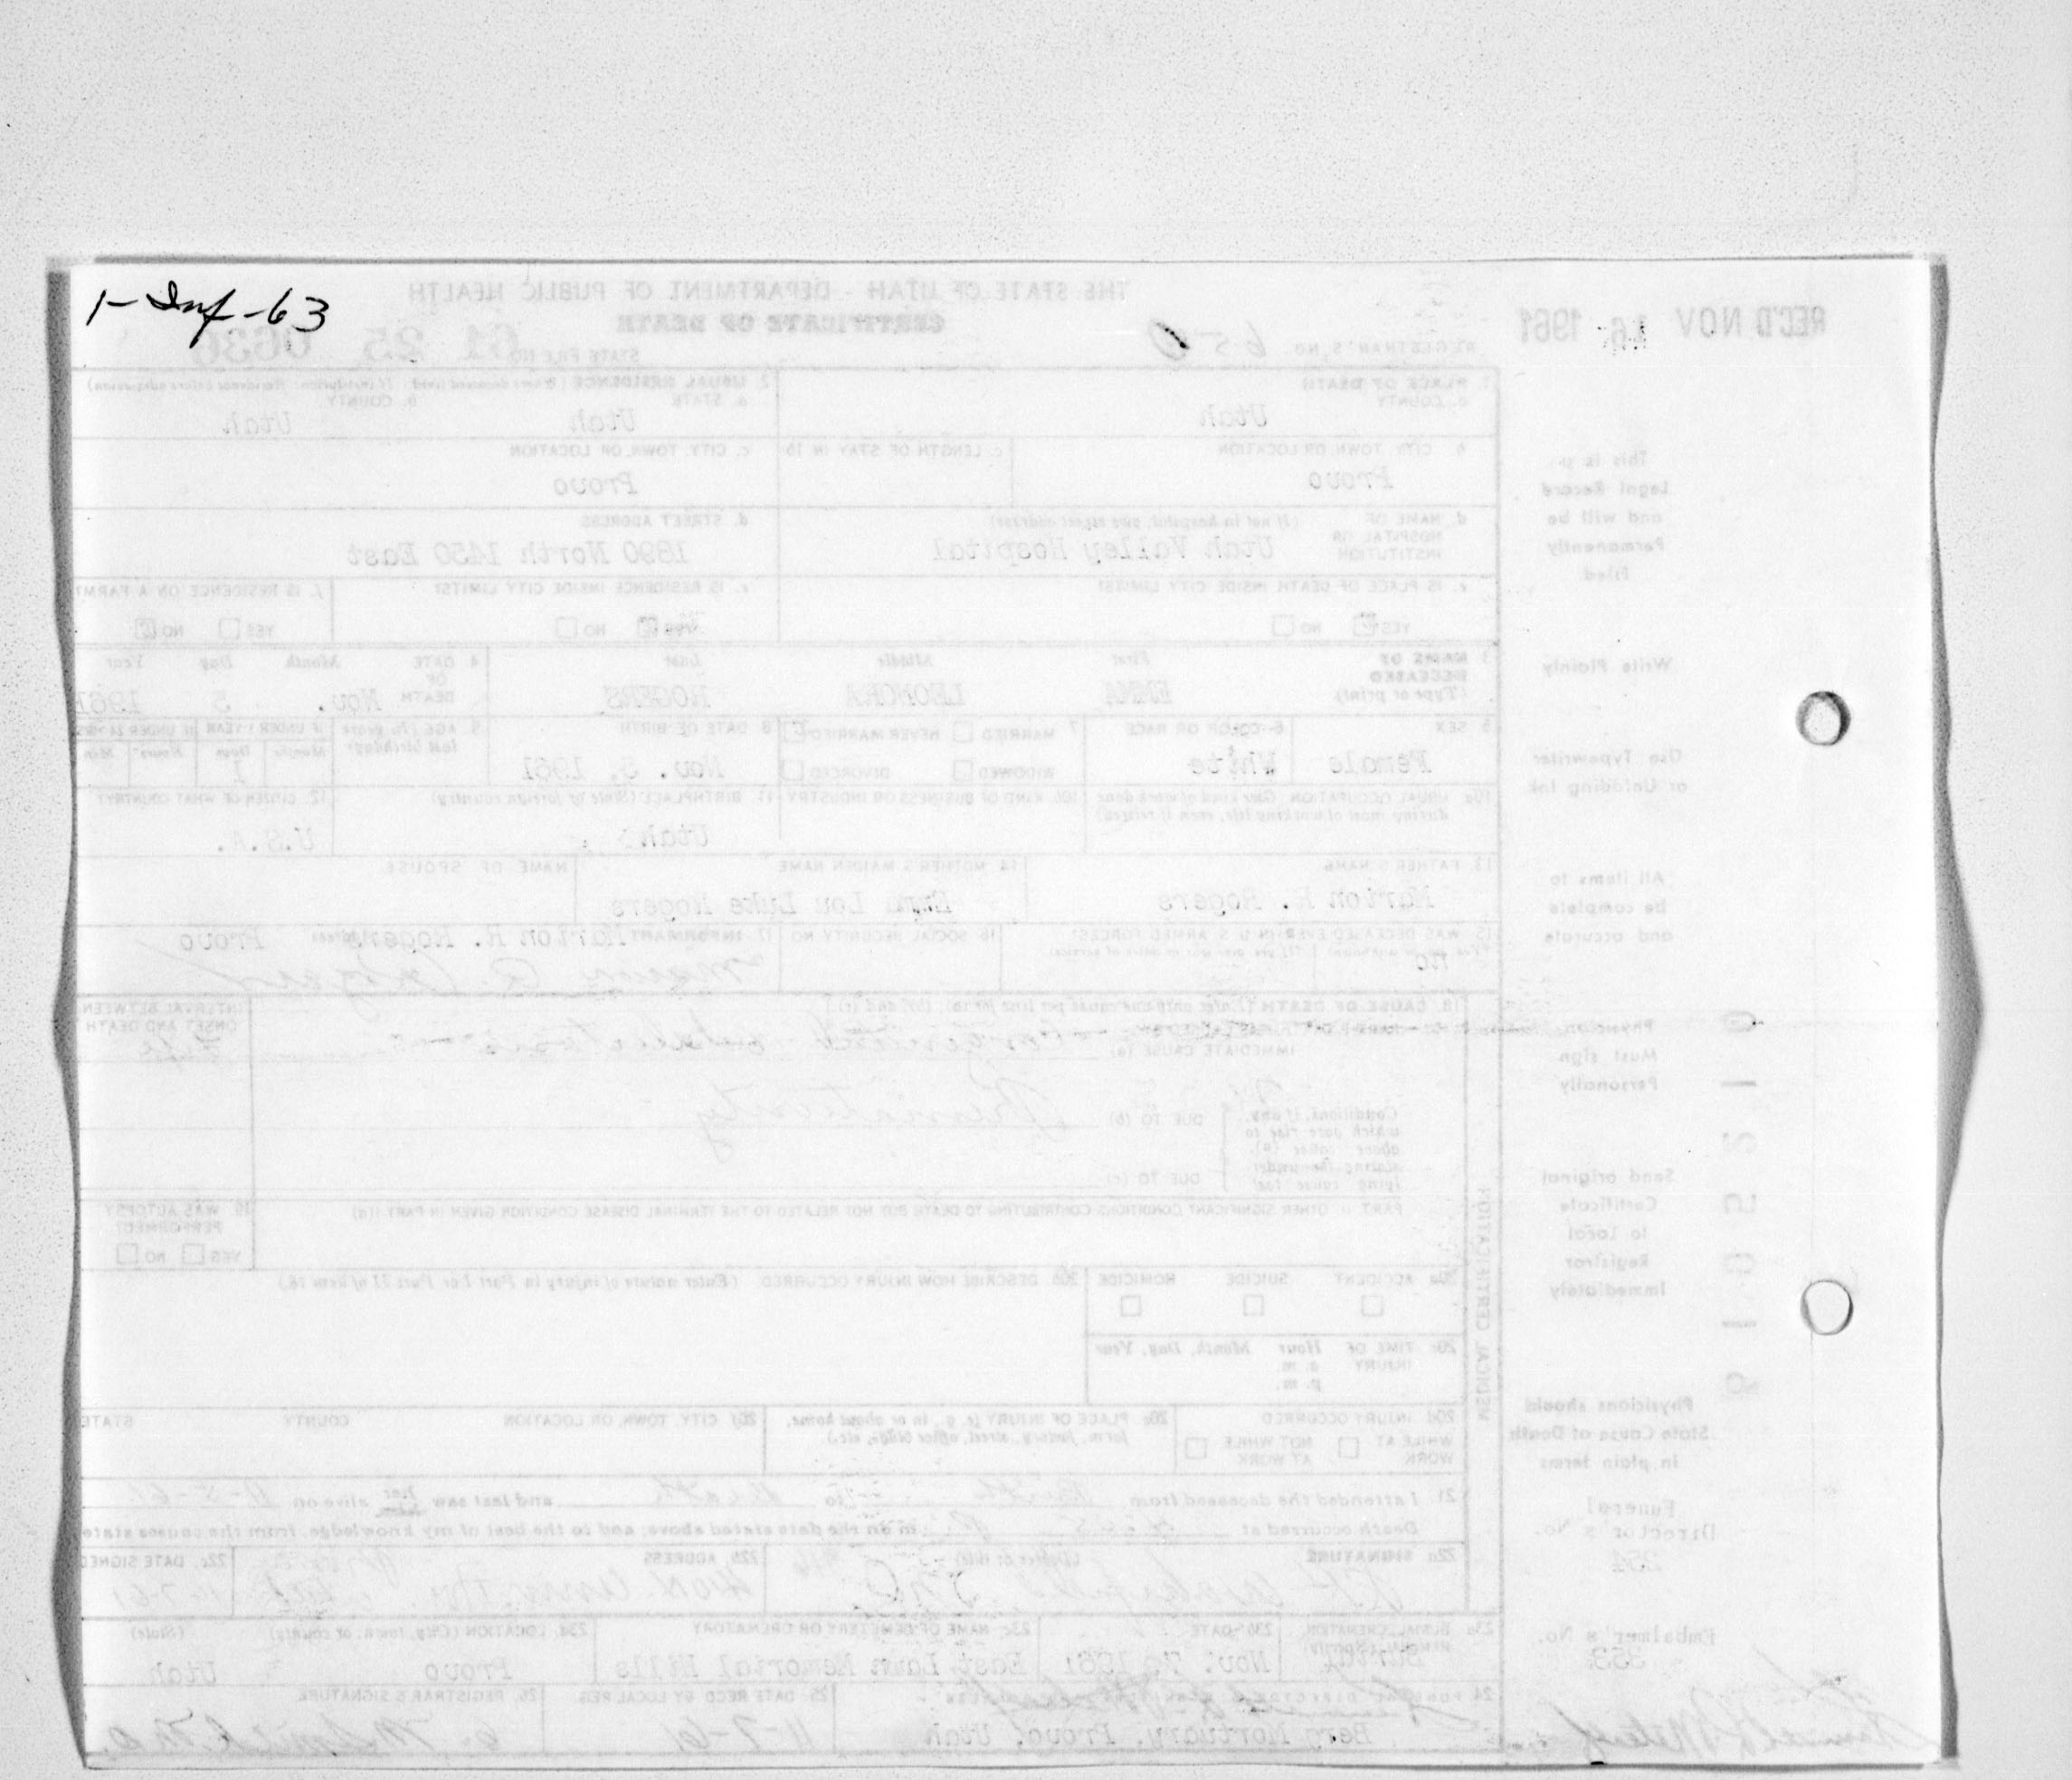 1-Inf-63
THE STATE OF UTAH - DEPARTMENT OF PUBLIC HEALTH
CERTIFICATE OF DEATH
REC'D NOV 16 1961
REGISTRAR'S NO. 650
STATE FILE NO. 61 25 0630
1. PLACE OF DEATH
a. COUNTY
Utah
2. USUAL RESIDENCE (Where deceased lived. If institution: Residence before admission)
a. STATE
Utah
b. COUNTY
Utah
b. CITY, TOWN, OR LOCATION
Provo
c. LENGTH OF STAY IN 1b
c. CITY, TOWN, OR LOCATION
Provo
d. NAME OF HOSPITAL OR INSTITUTION (If not in hospital, give street address)
Utah Valley Hospital
d. STREET ADDRESS
1890 North 1450 East
e. IS PLACE OF DEATH INSIDE CITY LIMITS?
YES NO
e. IS RESIDENCE INSIDE CITY LIMITS?
YES NO
f. IS RESIDENCE ON A FARM?
YES NO
3. NAME OF DECEASED (Type or print)
First Middle Last
LEONORA ROGERS
4. DATE OF DEATH Month Day Year
Nov. 5 1961
5. SEX
Female
6. COLOR OR RACE
White
7. MARRIED NEVER MARRIED
WIDOWED DIVORCED
8. DATE OF BIRTH
Nov. 1961
9. AGE (In years last birthday)
IF UNDER 1 YEAR IF UNDER 24 HRS.
Months Days Hours Min.
1
10a. USUAL OCCUPATION (Give kind of work done during most of working life, even if retired)
10b. KIND OF BUSINESS OR INDUSTRY
11. BIRTHPLACE (State or foreign country)
Utah
12. CITIZEN OF WHAT COUNTRY?
U.S.A.
13. FATHER'S NAME
Marion R. Rogers
14. MOTHER'S MAIDEN NAME
Lou Duke Rogers
NAME OF SPOUSE
15. WAS DECEASED EVER IN U. S. ARMED FORCES?
(Yes, no, or unknown) (If yes, give war or dates of service)
no
16. SOCIAL SECURITY NO.
17. INFORMANT Marion R. Rogers Address Provo
18. CAUSE OF DEATH (Enter only one cause per line for (a), (b), and (c).)
INTERVAL BETWEEN ONSET AND DEATH
IMMEDIATE CAUSE (a) Congenital atelectasis
Life
Conditions, if any, which gave rise to above cause (a), stating the underlying cause last
DUE TO (b) Prematurity
DUE TO (c)
PART II. OTHER SIGNIFICANT CONDITIONS CONTRIBUTING TO DEATH BUT NOT RELATED TO THE TERMINAL DISEASE CONDITION GIVEN IN PART I(a)
19. WAS AUTOPSY PERFORMED?
YES NO
20a. ACCIDENT SUICIDE HOMICIDE
20b. DESCRIBE HOW INJURY OCCURRED. (Enter nature of injury in Part I or Part II of item 18.)
20c. TIME OF INJURY Hour Month, Day, Year
a. m.
p. m.
20d. INJURY OCCURRED
WHILE AT WORK NOT WHILE AT WORK
20e. PLACE OF INJURY (e. g., in or about home, farm, factory, street, office bldg., etc.)
20f. CITY, TOWN, OR LOCATION COUNTY STATE
21. I attended the deceased from birth to death and last saw her alive on 11-5-61
Death occurred at m on the date stated above; and to the best of my knowledge, from the causes state
22a. SIGNATURE (Degree or title)
22b. ADDRESS
22c. DATE SIGNED
11-7-61
23a. BURIAL, CREMATION, REMOVAL (Specify)
Burial
23b. DATE
Nov. 7, 1961
23c. NAME OF CEMETERY OR CREMATORY
East Lawn Memorial Hills
23d. LOCATION (City, town, or county) (State)
Provo Utah
24. FUNERAL DIRECTOR'S
Berg Mortuary, Provo, Utah
25. DATE REC'D BY LOCAL REG.
11-7-61
26. REGISTRAR'S SIGNATURE
MEDICAL CERTIFICATION
This is a
Legal Record
and will be
Permanently
Filed
Write Plainly
Use Typewriter
or Unfading Ink
All items to
be complete
and accurate
Physician
Must sign
Personally
Send original
Certificate
to local
Registrar
Immediately
Physicians should
State Cause of Death
in plain terms
Funeral
Director's No.
254
Embalmer's No.
353